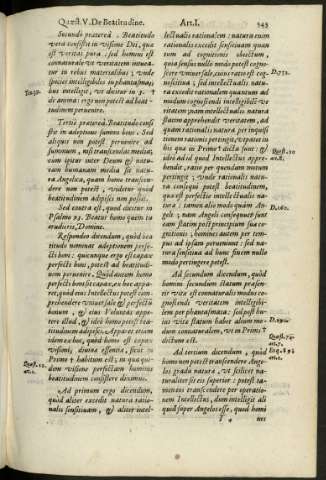 Quæst. V. De Beatitudine.
Art. I.
543
Secundò præterea. Beatitudo
vera consistit in visione Dei, qua
est veritas pura. sed homini est
connaturale vt veritatem intuea-
tur in rebus materialibus; vnde
species intelligibiles in phantasma-
tibus intelligit, vt dicitur in 3.
de anima: ergo non potest ad beati-
tudinem peruenire.
Tertiò præterea. Beatitudo consi-
stit in adeptione summi boni. Sed
aliquis non potest peruenire ad
summum, nisi transcendat media;
cùm igitur inter Deum & natu-
ram humanam media sit natu-
ra Angelica, quam homo transcen-
dere non potest, videtur quòd
beatitudinem adipisci non possit.
Sed contra est, quod dicitur in
Psalmo 93. Beatus homo quem tu
erudieris, Domine.
Respondeo dicendum, quòd bea-
titudo nominat adeptionem perfe-
cti boni: quicunque ergo est capax
perfecti boni, potest ad beatitudi-
nem peruenire. Quòd autem homo
perfecti boni sit capax, ex hoc appa-
ret, quòd eius Intellectus potest com-
prehendere vniuersale & perfectū
bonum, & eius Voluntas appe-
tere illud, & ideo homo potest bea-
titudinem adipisci. Apparet etiam
idem ex hoc, quòd homo est capax
visionis, diuinæ essentiæ, sicut in
Primo habitum est; in qua qui-
dem visione perfectam hominis
beatitudinem consistere diximus.
Ad primum ergo dicendum,
quòd aliter excedit natura ratio-
nalis sensitiuam, & aliter intel-
lectualis rationalem: natura enim
rationalis excedit sensitiuam quan
tum ad cognitionis obiectum,
quia sensus nullo modo potest cogno-
scere vniuersale, cuius ratio est co-
gnoscitiua. Sed intellectualis natu-
ra excedit rationalem quantum ad
modum cognoscendi intelligibilē ve-
ritatem: nam intellectualis natura
statim apprehendit veritatem, ad
quam rationalis natura per inquisi-
tionem rationis pertingit, vt patet ex
his quæ in Primo dicta sunt: &
ideo ad id quod Intellectus appre-
hendit, ratio per quendam motum
pertingit; vnde rationalis natu-
ra consequi potest beatitudinem,
quæ est perfectio intellectualis na-
turæ: tamen alio modo quàm An-
geli; nam Angeli consequuti sunt
eam statim post principium suæ con-
ditionis; homines autem per tem-
pus ad ipsam perueniunt: sed na-
tura sensitiua ad hunc finem nullo
modo pertingere potest.
Ad secundum dicendum, quòd
homini secundum statum præsen-
tis vitæ est connaturalis modus co-
gnoscendi veritatem intelligibi-
lem per phantasmata: sed post hu-
ius vitæ statum habet alium mo-
dum connaturalem, vt in Primo
dictum est.
Ad tertium dicendum, quòd
homo non potest transcendere Ange-
los gradu naturæ, vt scilicet na-
turaliter sit eis superior: potest ta-
men eos transcendere per operatio-
nem Intellectus, dum intelligit ali
quid super Angelos esse, quod homi
nes